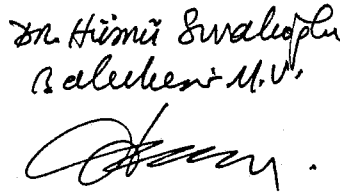 Dr. Hüsnü Sıvalıoğlu
Balıkesir M.V.